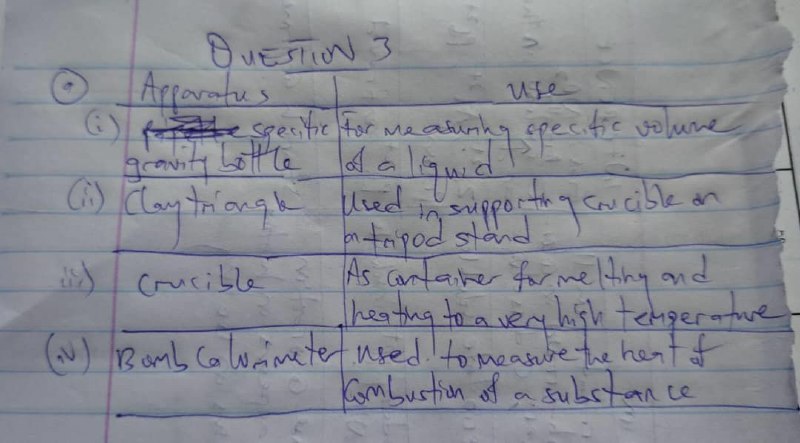 QUESTION 3
a Apparatus use
(i) specific for measuring specific volume
gravity bottle of a liquid
(ii) Clay triangle Used in supporting crucible on
a tripod stand
iii) Crucible As container for melting and
heating to a very high temperature
(iv) Bomb Calorimeter used to measure the heat of
Combustion of a substance